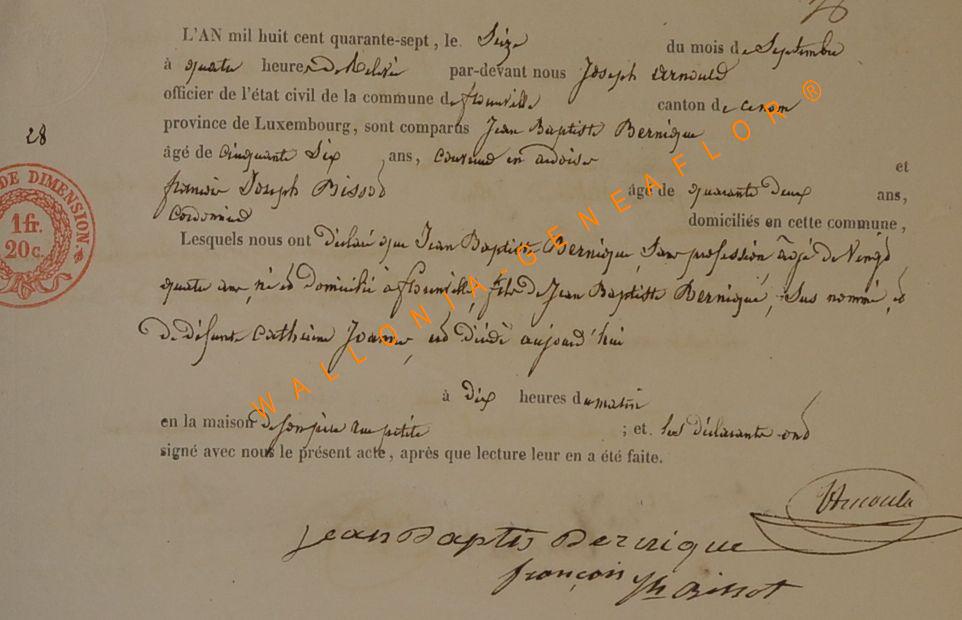 L'AN mil huit cent quarante-sept, le Seize du mois de Septembre
à quatre heures de Relevé par-devant nous Joseph Arnould
officier de l'état civil de la commune de florenville canton de
province de Luxembourg, sont comparus Jean Baptiste Bernique
âgé de Cinquante Six ans, Couvreur en ardoise et
françois Joseph Bissot âgé de quarante deux ans,
Cordonnier domiciliés en cette commune,
Lesquels nous ont déclaré que Jean Baptiste Bernique, Sans profession âgé de Vingt
quatre ans, né et domicilié à florenville, fils de Jean Baptiste Bernique, Sus nommé, et
de défunte Catherine, est décédé aujourd'hui
à dix heures du matin
en la maison de son père rue petite ; et les déclarants ont
signé avec nous le présent acte, après que lecture leur en a été faite.
28
DE DIMENSION
1 fr.
20 c.
WALLONIA-GENEAFLOR®
Jean Baptis Bernique
françois Jh Bissot